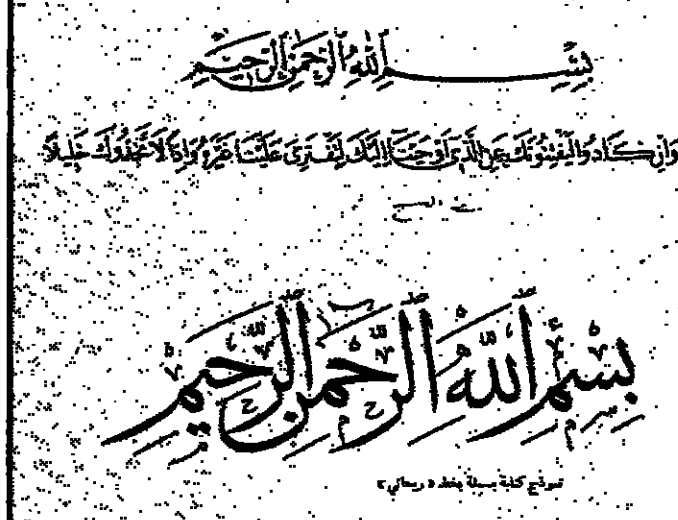 بِسْمِ اللَّهِ الرَّحْمَنِ الرَّحِيمِ
وَإِن كَادُوا لَيَفْتِنُونَكَ عَنِ الَّذِي أَوْحَيْنَا إِلَيْكَ لِتَفْتَرِيَ عَلَيْنَا غَيْرَهُ وَإِذًا لَاتَّخَذُوكَ خَلِيلًا
بِسْمِ اللَّهِ الرَّحْمَنِ الرَّحِيمِ
نموذج كتابة بسملة بخط « ريحاني »